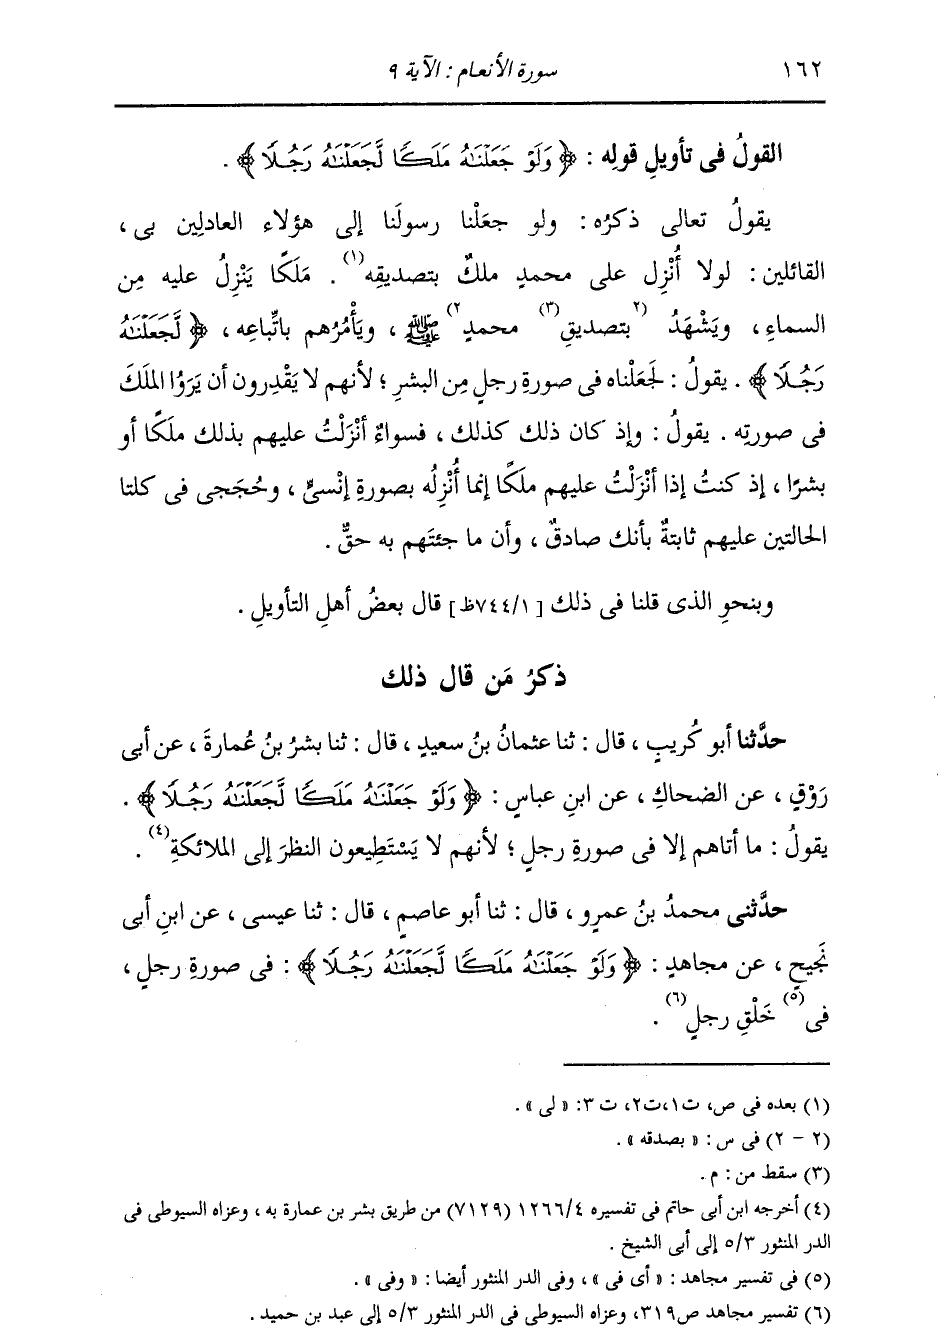 ١٦٢ سورة الأنعام : الآية ٩
القولُ فى تأويلِ قولِه : ﴿ وَلَوْ جَعَلْنَٰهُ مَلَكًا لَّجَعَلْنَٰهُ رَجُلًا ﴾ .
يقولُ تعالى ذكرُه : ولو جعَلْنا رسولَنا إلى هؤلاء العادلِين بى ،
القائلين : لولا أُنْزِل على محمدٍ ملكٌ بتصديقِه(١) . مَلَكًا يَنْزِلُ عليه مِن
السماءِ ، ويَشْهَدُ (٢ بتصديقِ(٣) محمدٍ٢) ﷺ ، ويَأْمُرُهم باتِّباعِه ، ﴿ لَّجَعَلْنَٰهُ
رَجُلًا ﴾ . يقولُ : لجَعَلْناه فى صورةِ رجلٍ مِن البشرِ ؛ لأنهم لا يَقْدِرون أن يَرَوُا الملَكَ
فى صورتِه . يقولُ : وإذ كان ذلك كذلك ، فسواءٌ أنْزَلْتُ عليهم بذلك ملَكًا أو
بشرًا ، إذ كنتُ إذا أنْزَلْتُ عليهم ملَكًا إنما أُنْزِلُه بصورةِ إنْسىٍّ ، وحُجَجى فى كلتا
الحالتين عليهم ثابتةٌ بأنك صادقٌ ، وأن ما جئتَهم به حقٌّ .
وبنحوِ الذى قلنا فى ذلك [٧٤٤/١ظ] قال بعضُ أهلِ التأويلِ .
ذكرُ مَن قال ذلك
حدَّثنا أبو كُريبٍ ، قال : ثنا عثمانُ بنُ سعيدٍ ، قال : ثنا بشرُ بنُ عُمارةَ ، عن أبى
رَوْقٍ ، عن الضحاكِ ، عن ابنِ عباسٍ : ﴿ وَلَوْ جَعَلْنَٰهُ مَلَكًا لَّجَعَلْنَٰهُ رَجُلًا ﴾ .
يقولُ : ما أتاهم إلا فى صورةِ رجلٍ ؛ لأنهم لا يَسْتَطِيعون النظرَ إلى الملائكةِ(٤) .
حدَّثنى محمدُ بنُ عمرٍو ، قال : ثنا أبو عاصمٍ ، قال : ثنا عيسى ، عن ابنِ أبى
نَجيحٍ ، عن مجاهدٍ : ﴿ وَلَوْ جَعَلْنَٰهُ مَلَكًا لَّجَعَلْنَٰهُ رَجُلًا ﴾ : فى صورةِ رجلٍ ،
فى(٥) خَلْقِ رجلٍ(٦) .
(١) بعده فى ص، ت١،ت٢، ت ٣: « لى » .
(٢ - ٢) فى س : « بصدقه » .
(٣) سقط من : م .
(٤) أخرجه ابن أبى حاتم فى تفسيره ١٢٦٦/٤ (٧١٢٩) من طريق بشر بن عمارة به ، وعزاه السيوطى فى
الدر المنثور ٥/٣ إلى أبى الشيخ .
(٥) فى تفسير مجاهد : « أى فى » ، وفى الدر المنثور أيضا : « وفى » .
(٦) تفسير مجاهد ص٣١٩، وعزاه السيوطى فى الدر المنثور ٥/٣ إلى عبد بن حميد .